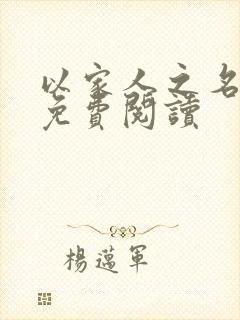 以家人之名
免費閱讀
楊邁軍